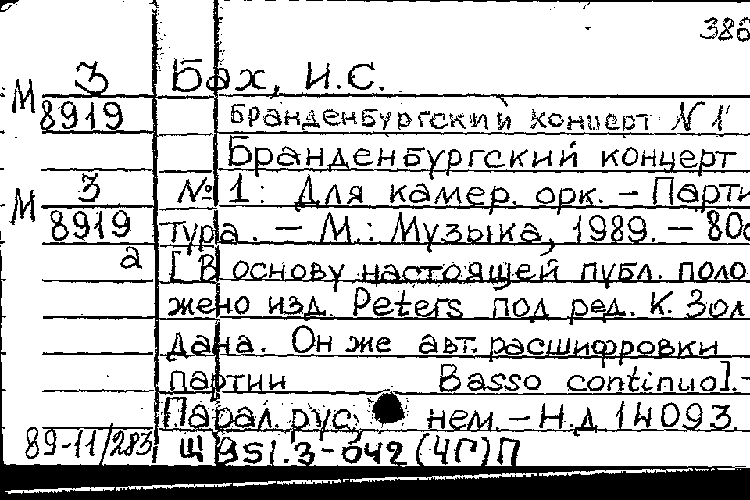 386
М 3 Бах, И.С.
8919 Бранденбургский концерт N 1
Бранденбургский концерт
М 3 № 1: Для камер. орк. – Парти
8919 тура. – М.: Музыка, 1989. – 80с
а [В основу настоящей публ. поло
жено изд. Peters под ред. К. Зол
дана. Он же авт. расшифровки
партии Basso continuo]. –
Парал. рус., нем. – Н.д 14093.
89-11/283 Щ 951.3-642 (4Г) П